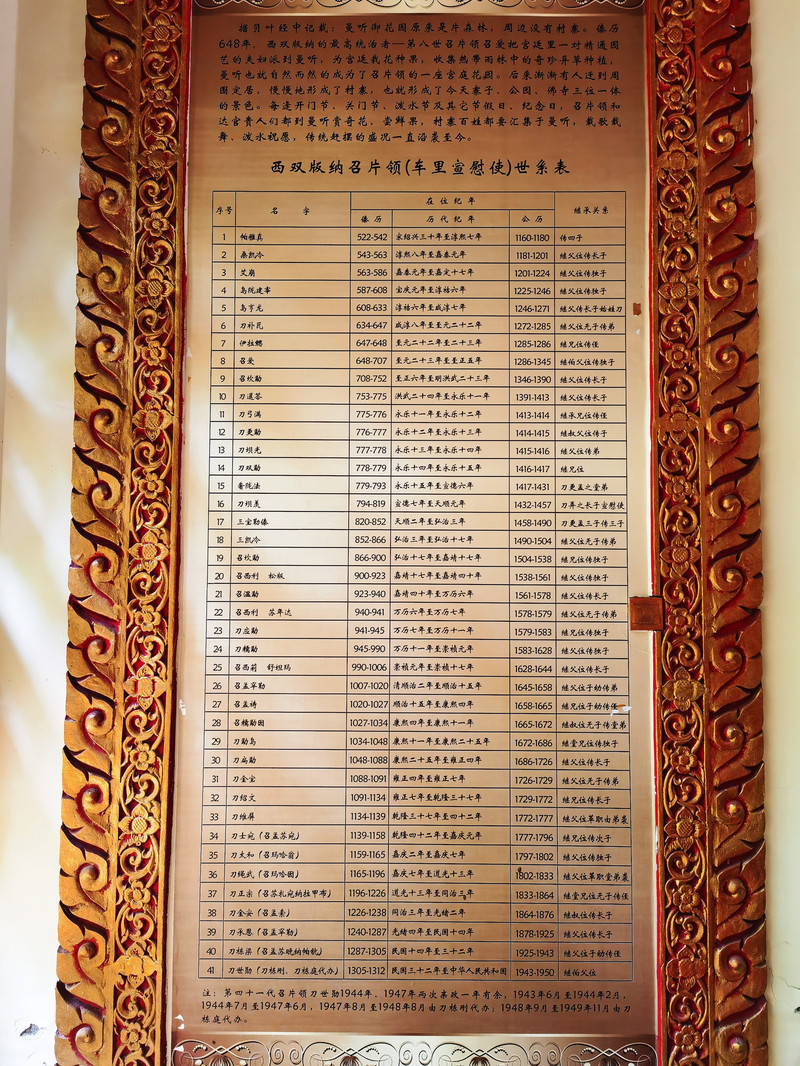 据贝叶经中记载：曼听御花园原来是片森林，周边没有村寨。傣历
648年，西双版纳的最高统治者—第八世召片领召爱把宫廷里一对精通园
艺的夫妇派到曼听，为宫廷栽花种果，收集热带雨林中的奇珍异草种植，
曼听也就自然而然的成为了召片领的一座宫庭花园。后来渐渐有人迁到周
围定居，慢慢地形成了村寨，也就形成了今天寨子、公园、佛寺三位一体
的景色。每逢开门节、关门节、泼水节及其它节假日、纪念日，召片领和
达官贵人们都到曼听赏奇花、尝鲜果，村寨百姓都要汇集于曼听，载歌载
舞、泼水祝愿，传统赶摆的盛况一直沿袭至今。
西双版纳召片领(车里宣慰使)世系表
序号 名 字 在位纪年 继承关系
傣历 历代纪年 公历
1 帕雅真 522-542 宋绍兴三十年至淳熙七年 1160-1180 传四子
2 桑凯冷 543-563 淳熙八年至嘉泰元年 1181-1201 继父位传长子
3 艾崩 563-586 嘉泰元年至嘉定十七年 1201-1224 继父位传独子
4 岛陇建事 587-608 宝庆元年至淳祐六年 1225-1246 继父位传独子
5 岛亨龙 608-633 淳祐六年至咸淳七年 1246-1271 继父传长子始姓刀
6 刀补瓦 634-647 咸淳八年至至元二十二年 1272-1285 继父位无子传弟
7 伊拉 647-648 至元二十二年至二十三年 1285-1286 继兄位传侄
8 召爱 648-707 至元二十三年至至正五年 1286-1345 继伯父位传独子
9 召坎勐 708-752 至正六年至明洪武二十三年 1346-1390 继父位传长子
10 刀暹答 753-775 洪武二十四年至永乐十一年 1391-1413 继父位传长子
11 刀弓满 775-776 永乐十一年至永乐十二年 1413-1414 继承兄位传侄
12 刀更勐 776-777 永乐十二年至永乐十三年 1414-1415 继叔父位传子
13 刀坝光 777-778 永乐十三年至永乐十四年 1415-1416 继父位传弟
14 刀双勐 778-779 永乐十四年至永乐十五年 1416-1417 继兄位
15 奢陇法 779-793 永乐十五年至宣德六年 1417-1431 刀更孟之堂弟
16 刀坝美 794-819 宣德七年至天顺元年 1432-1457 刀弄之长子宣慰使
17 三宝勒傣 820-852 天顺二年至弘治三年 1458-1490 刀更孟三子传三子
18 三凯冷 852-866 弘治三年至弘治十七年 1490-1504 继父位无子传弟
19 召坎勐 866-900 弘治十七年至嘉靖十七年 1504-1538 继兄位传独子
20 召西利 松版 900-923 嘉靖十七年至嘉靖四十年 1538-1561 继父位传独子
21 召温勐 923-940 嘉靖四十年至万历六年 1561-1578 继父位传长子
22 召西利 苏年达 940-941 万历六年至万历七年 1578-1579 继父位无子传弟
23 刀应勐 941-945 万历七年至万历十一年 1579-1583 继兄位传独子
24 刀糯勐 945-990 万历十一年至崇祯元年 1583-1628 继父位传独子
25 召西莉 舒妲玛 990-1006 崇祯元年至崇祯十七年 1628-1644 继父位传长子
26 召孟罕勒 1007-1020 清顺治二年至顺治十五年 1645-1658 继父位子幼传弟
27 召孟祷 1020-1027 顺治十五年至康熙四年 1658-1665 继兄位子幼传侄
28 召糯勐囡 1027-1034 康熙四年至康熙十一年 1665-1672 继叔位无子传堂弟
29 刀勐岛 1034-1048 康熙十一年至康熙二十五年 1672-1686 继堂兄位传独子
30 刀扁勐 1048-1088 康熙二十五年至雍正四年 1686-1726 继父位传长子
31 刀金宝 1088-1091 雍正四年至雍正七年 1726-1729 继父位无子传弟
32 刀绍文 1091-1134 雍正七年至乾隆三十七年 1729-1772 继兄位传长子
33 刀维屏 1134-1139 乾隆三十七年至四十二年 1772-1777 继父位革职由弟袭
34 刀士宛（召孟苏宛） 1139-1158 乾隆四十二年至嘉庆元年 1777-1796 继兄位传次子
35 刀太和（召玛哈翁） 1159-1165 嘉庆二年至嘉庆七年 1797-1802 继父位传独子
36 刀绳武（召玛哈囡） 1165-1196 嘉庆七年至道光十三年 1802-1833 继父位革职堂弟袭
37 刀正宗（召苏扎宛纳拉甲布） 1196-1226 道光十三年至同治三年 1833-1864 继堂兄位无子传侄
38 刀金安（召孟素） 1226-1238 同治三年至光绪二年 1864-1876 继叔位传长子
39 刀承恩（召孟罕勒） 1240-1287 光绪四年至民国十四年 1878-1925 继父位传长子
40 刀栋梁（召孟苏晚纳帕钪） 1287-1305 民国十四年至三十二年 1925-1943 继父位子幼传侄
41 刀世勋（刀栋刚、刀栋庭代办） 1305-1312 民国三十二年至中华人民共和国 1943-1950 继伯父位
注：第四十一代召片领刀世勋1944年、1947年两次亲政一年有余，1943年6月至1944年2月，
1944年7月至1947年6月，1947年8月至1948年8月由刀栋刚代办；1948年9月至1949年11月由刀
栋庭代办。